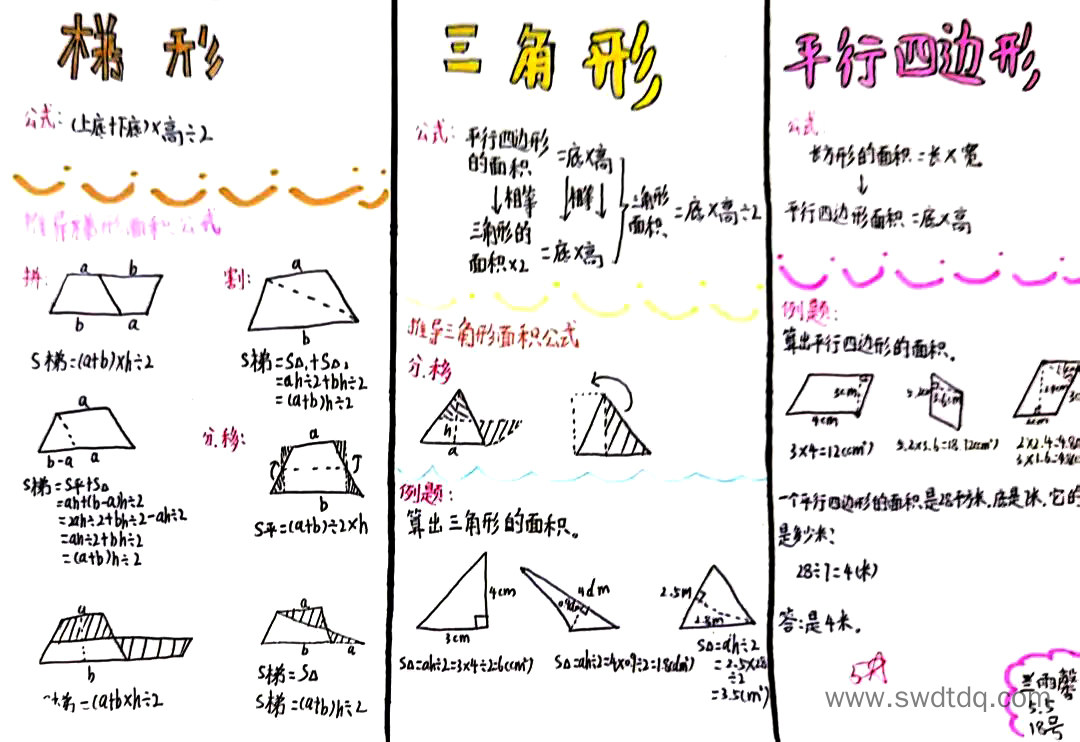 梯形
公式: (上底+下底)×高÷2
推导梯形面积公式
拼:
a b
b a
S梯=(a+b)×h÷2
割:
a
b
S梯=S△1+S△2
=ah÷2+bh÷2
=(a+b)h÷2
a
b-a a
S梯=S平+S△
=ah+(b-a)h÷2
=2ah÷2+bh÷2-ah÷2
=ah÷2+bh÷2
=(a+b)h÷2
分.移:
a
b
S平=(a+b)÷2×h
a
b
=(a+b×h÷2
a
b a
S梯=S△
S梯=(a+b)h÷2
三角形
公式:
平行四边形的面积=底×高
↓相等 ↓相等↓
三角形的面积×2=底×高
三角形面积=底×高÷2
推导三角形面积公式
分.移
h
a
例题:
算出三角形的面积。
4cm
3cm
S△=ah÷2=3×4÷2=6(cm²)
4dm
0.9dm
S△=ah÷2=4×0.9÷2=1.8(dm²)
2.5m
2.8m
S△=ah÷2
=2.5×2.8
÷2
=3.5(m²)
平行四边形
公式
长方形的面积=长×宽
↓
平行四边形面积=底×高
例题:
算出平行四边形的面积。
3cm
4cm
3×4=12(cm²)
3.6cm
5.2×3.6=18.72(cm²)
2×2.4=4.8
3×1.6=4.8
一个平行四边形的面积是28平方米,底是7米,它的
是多少米?
28÷7=4(米)
答:是4米。
www.swdtdq.com
5.5
18号